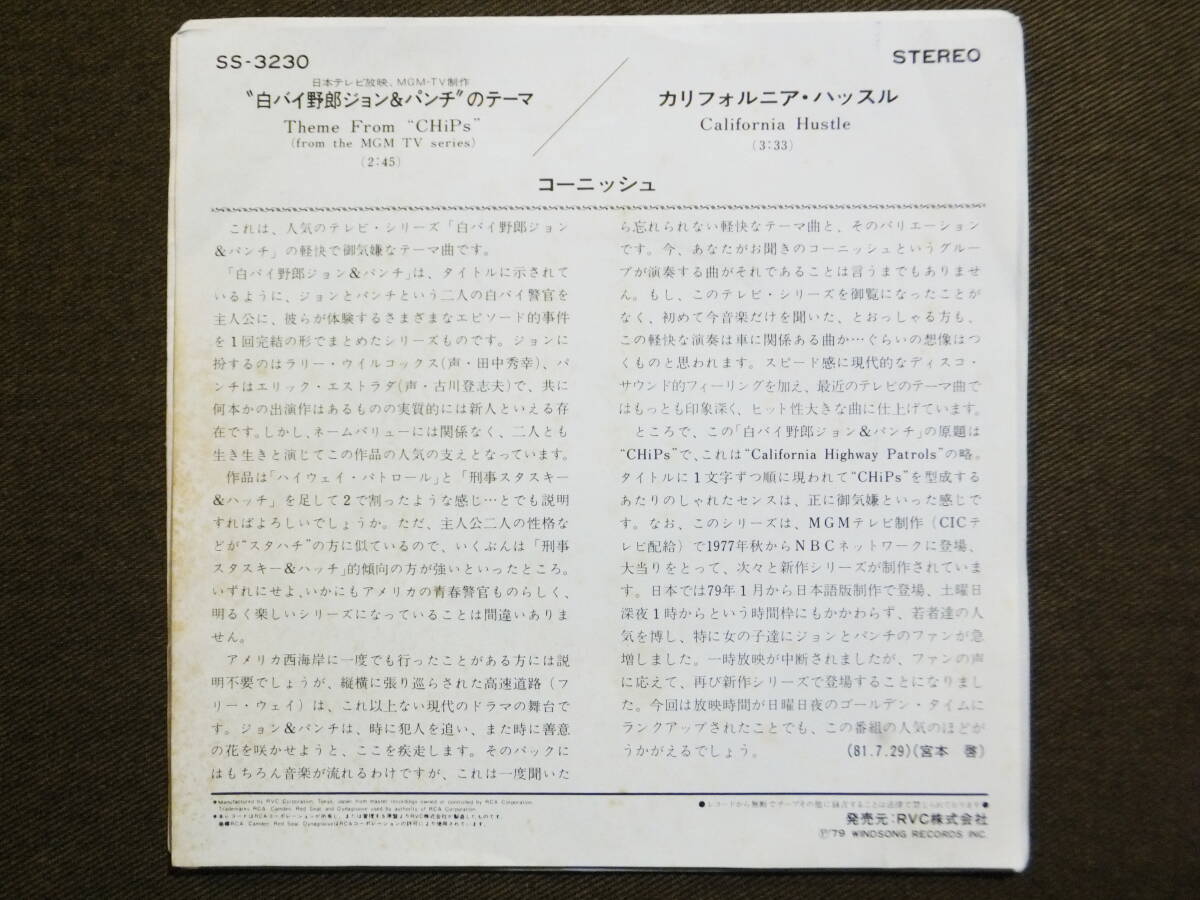 SS-3230
STEREO
日本テレビ放映、MGM-TV制作
“白バイ野郎ジョン&パンチ”のテーマ
Theme From “CHiPs”
(from the MGM TV series)
(2:45)
カリフォルニア・ハッスル
California Hustle
(3:33)
コーニッシュ
これは、人気のテレビ・シリーズ「白バイ野郎ジョン
&パンチ」の軽快で御気嫌なテーマ曲です。
「白バイ野郎ジョン&パンチ」は、タイトルに示されて
いるように、ジョンとパンチという二人の白バイ警官を
主人公に、彼らが体験するさまざまなエピソード的事件
を1回完結の形でまとめたシリーズものです。ジョンに
扮するのはラリー・ウイルコックス(声・田中秀幸)、パ
ンチはエリック・エストラダ(声・古川登志夫)で、共に
何本かの出演作はあるものの実質的には新人といえる存
在です。しかし、ネームバリューには関係なく、二人とも
生き生きと演じてこの作品の人気の支えとなっています。
作品は「ハイウェイ・パトロール」と「刑事スタスキー
&ハッチ」を足して2で割ったような感じ…とでも説明
すればよろしいでしょうか。ただ、主人公二人の性格な
どが“スタハチ”の方に似ているので、いくぶんは「刑事
スタスキー&ハッチ」的傾向の方が強いといったところ。
いずれにせよ、いかにもアメリカの青春警官ものらしく、
明るく楽しいシリーズになっていることは間違いありま
せん。
アメリカ西海岸に一度でも行ったことがある方には説
明不要でしょうが、縦横に張り巡らされた高速道路(フ
リー・ウェイ)は、これ以上ない現代のドラマの舞台で
す。ジョン&パンチは、時に犯人を追い、また時に善意
の花を咲かせようと、ここを疾走します。そのバックに
はもちろん音楽が流れるわけですが、これは一度聞いた
ら忘れられない軽快なテーマ曲と、そのバリエーション
です。今、あなたがお聞きのコーニッシュというグルー
プが演奏する曲がそれであることは言うまでもありませ
ん。もし、このテレビ・シリーズを御覧になったことが
なく、初めて今音楽だけを聞いた、とおっしゃる方も、
この軽快な演奏は車に関係ある曲か…ぐらいの想像はつ
くものと思われます。スピード感に現代的なディスコ・
サウンド的フィーリングを加え、最近のテレビのテーマ曲で
はもっとも印象深く、ヒット性大きな曲に仕上げています。
ところで、この「白バイ野郎ジョン&パンチ」の原題は
“CHiPs”で、これは“California Highway Patrols”の略。
タイトルに1文字ずつ順に現われて“CHiPs”を型成する
あたりのしゃれたセンスは、正に御気嫌といった感じで
す。なお、このシリーズは、MGMテレビ制作(CICテ
レビ配給)で1977年秋からNBCネットワークに登場、
大当りをとって、次々と新作シリーズが制作されていま
す。日本では79年1月から日本語版制作で登場、土曜日
深夜1時からという時間枠にもかかわらず、若者達の人
気を博し、特に女の子達にジョンとパンチのファンが急
増しました。一時放映が中断されましたが、ファンの声
に応えて、再び新作シリーズで登場することになりまし
た。今回は放映時間が日曜日夜のゴールデン・タイムに
ランクアップされたことでも、この番組の人気のほどが
うかがえるでしょう。 (81.7.29)(宮本 啓)
●Manufactured by RVC Corporation, Tokyo, Japan from master recordings owned or controlled by RCA Corporation.
Trademarks RCA, Camden, Red Seal, and Dynagroove used by authority of RCA Corporation.
●本レコードはRCAコーポレーションが所有し、または管理する原盤よりRVC株式会社が製造したものです。
商標RCA, Camden, Red Seal, DynagrooveはRCAコーポレーションの許可により使用されています。
●レコードから無断でテープその他に録音することは法律で禁じられております●
発売元：RVC株式会社
Ⓟ'79 WINDSONG RECORDS INC.